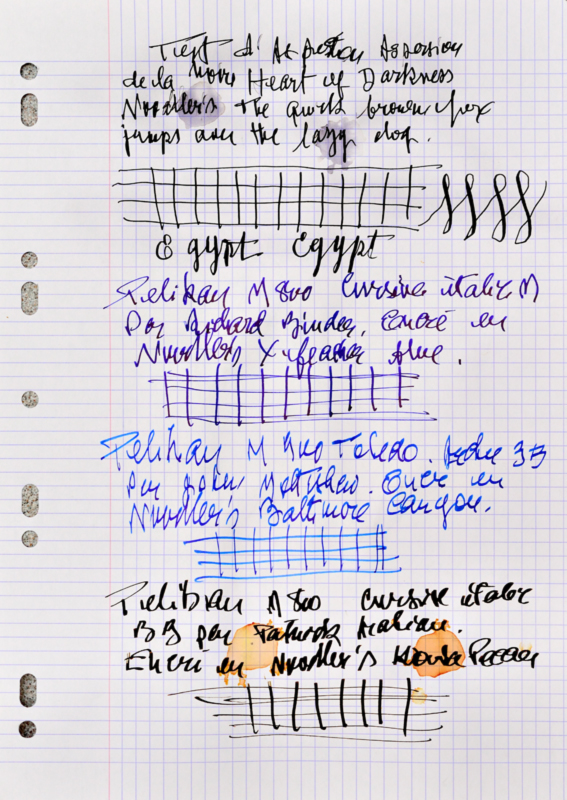 Test d'
de la Noire Heart of Darkness
Noodler's The quick brown fox
jumps over the lazy dog.
Egypt Egypt
Pelikan M 800 Cursive italic M
Par Richard Binder, Encre en
Noodler's X-feather blue.
Pelikan M 900 Toledo. 3B
par John Mottishaw. Encre en
Noodler's Baltimore Canyon.
Pelikan M 800 Cursive italic
BB par
Encre en Noodler's